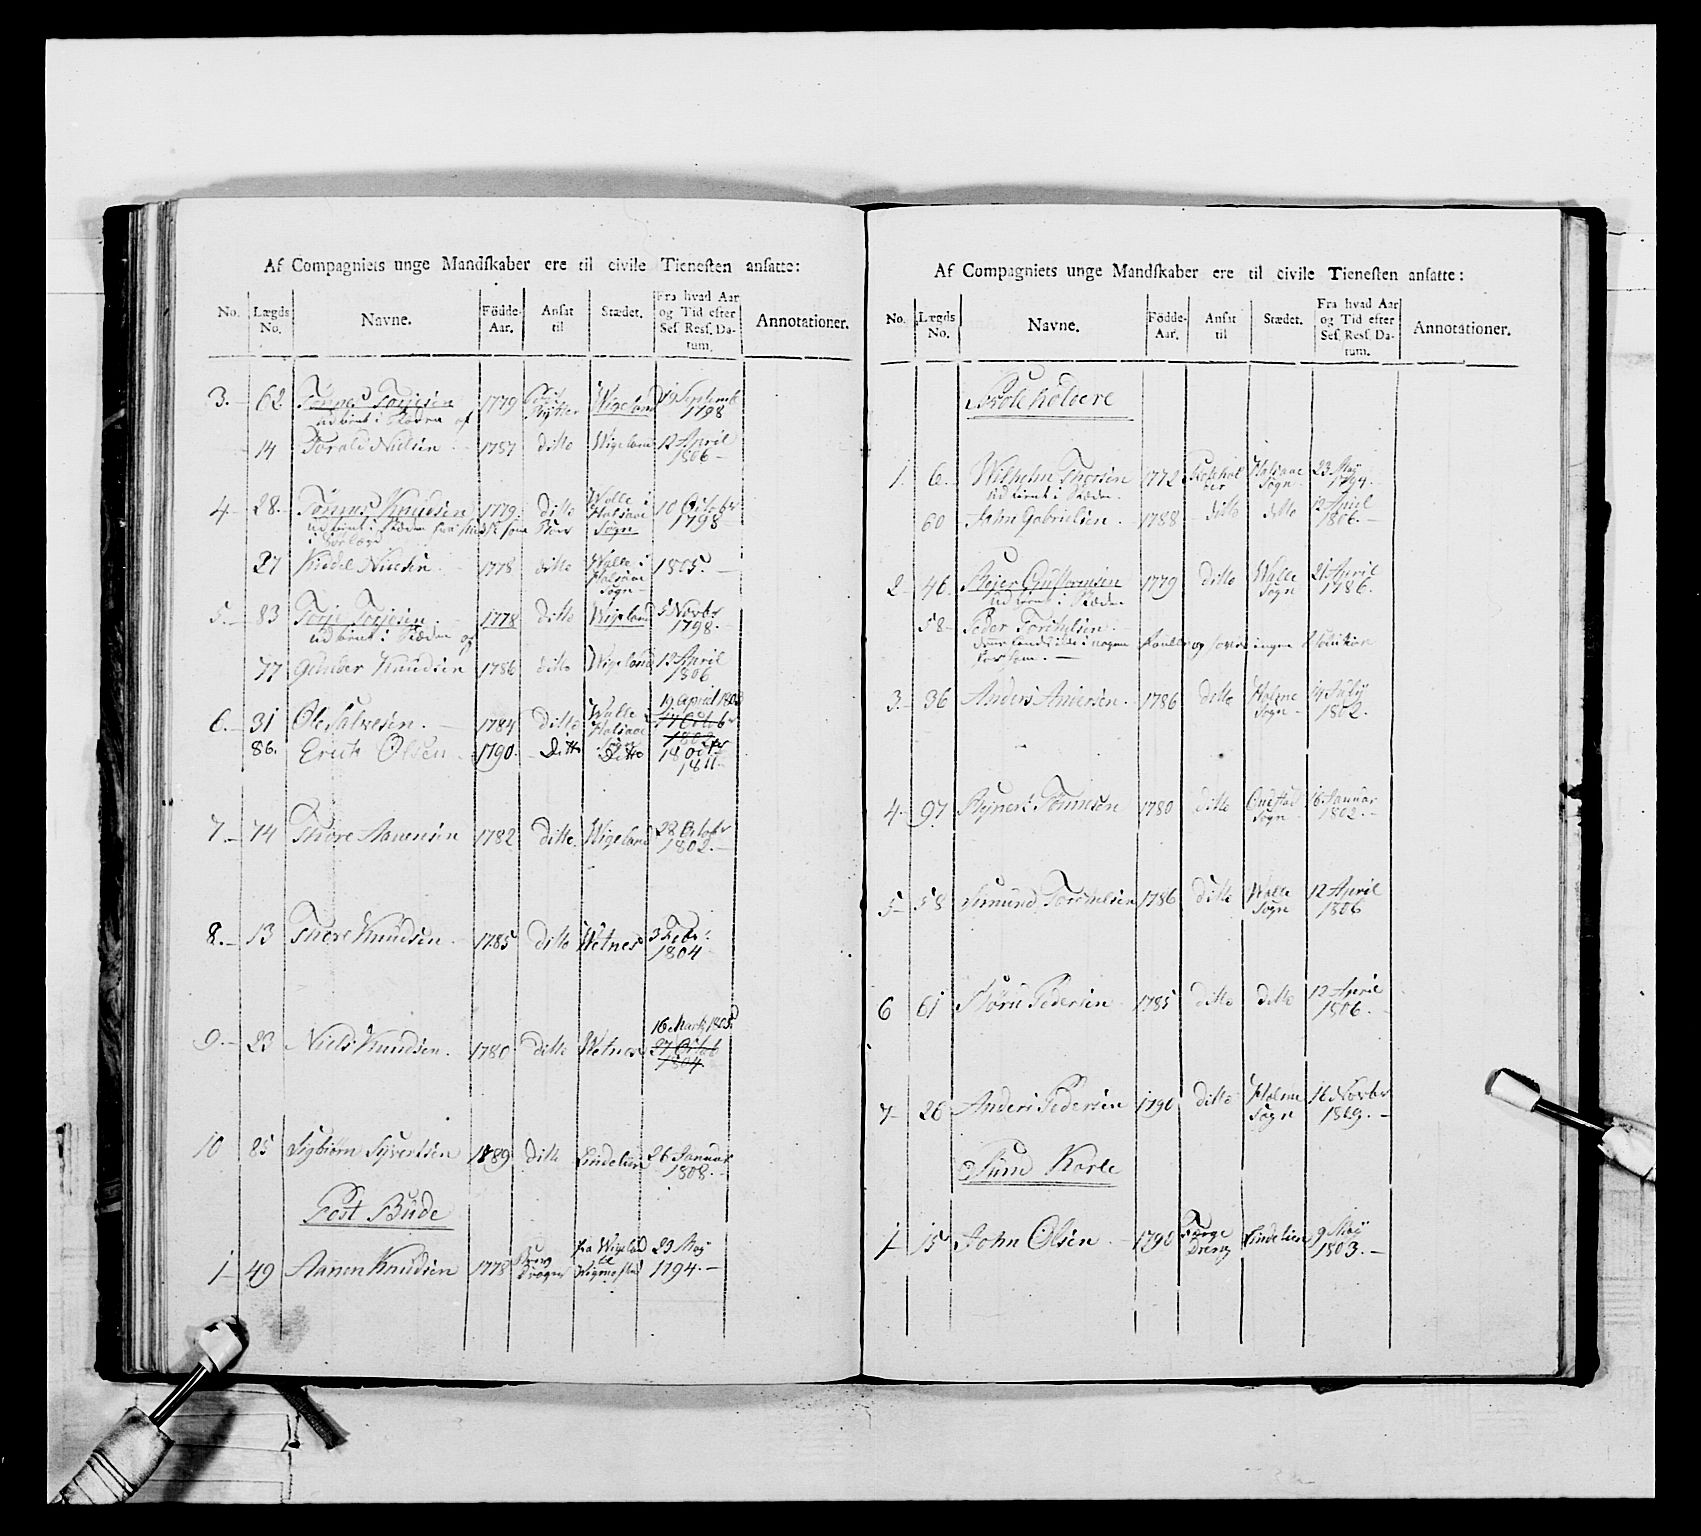 Af Compagniets unge Mandskaber ere til civile Tienesten ansatte:
No. Lægds No. Navne. Födde-Aar. Ansat til Stædet. Fra hvad Aar og Tid efter Sef. Resf. Datum. Annotationer.
3. 62 Tønnes Torjesen 1779 Wigeland 19 Septembr 1798
udtient i Stæden af
14 Torald Nielsen 1787 ditto Wigeland 12 April 1806
4 28. Tønnes Knudsen 1779. ditto Walle i Halsaae Sogn 10 Octobr 1798
udtient i Stæden
27 Kiedel Nielsen 1778 ditto Walle i Halsaae Sogn 1805.
5. 83 Torje Torjesen 1778 ditto Wigeland 5 Novbr 1798.
udtient i Stæden af
77 Gunder Knudsen 1786 ditto Wigeland 12 April 1806
6. 31 Ole Salvesen. 1784 Ditto Walle Halsaae Sogn 19 April 1803
86. Erich Olsen 1790. Ditto Ditto 18 Octbr 1811.
7. 74 Thore Aanensen 1782 ditto Wigeland 28 Octobr 1802.
8. 13 Thore Knudsen 1785 ditto Wetnes 3 Febr: 1804
9. 23 Niels Knudsen. 1780 ditto Wetnes 16 Marty 1805
27 Octob 1804
10 85 Sigbiørn Syvertsen 1789 ditto Lindelien 26 Januar 1808.
Post Bude
1 49 Aanen Knudsen 1778 fra Wigeland til Wigmostad 23 May 1794.
Af Compagniets unge Mandskaber ere til civile Tienesten ansatte:
No. Lægds No. Navne. Födde-Aar. Ansat til Stædet. Fra hvad Aar og Tid efter Sef. Resf. Datum. Annotationer.
Skoleholdere
1. 6. Wilhelm Thorsen 1772 Skoleholder Halsaae Sogn 23 May 1794.
udtient i Stæden.
60 John Gabrielsen. 1788 ditto ditto 12 April 1806.
2. 46. Rejer Guttormsen 1779 ditto Walle Sogn 21 April 1786.
udtient i Stæden
58 Peder Torkelsen.
3. 36 Anders Andersen. 1786 ditto Holme Sogn 14 July 1802.
4. 97 Rejnert Tønnesen 1780 ditto Sogn 16 Januar 1802.
5 58 Simund Torkelsen 1786 ditto Walle Sogn 12 April 1806
6 61 Børu Pedersen 1785 ditto ditto 12 April 1806.
7 26 Anders Pedersen 1790 ditto Holme Sogn 16 Novbr 1809.
Sund Karle
1 15 John Olsen 1790 Færge Dreng Lindelien 9 May 1803.